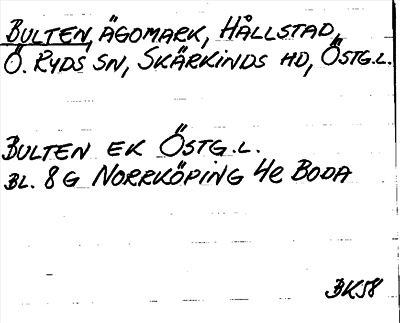 BULTEN, ÄGOMARK, HÅLLSTAD,
Ö. RYDS SN, SKÄRKINDS HD, ÖSTG.L.
BULTEN EK ÖSTG.L.
BL. 8G NORRKÖPING 4e BODA
BK58